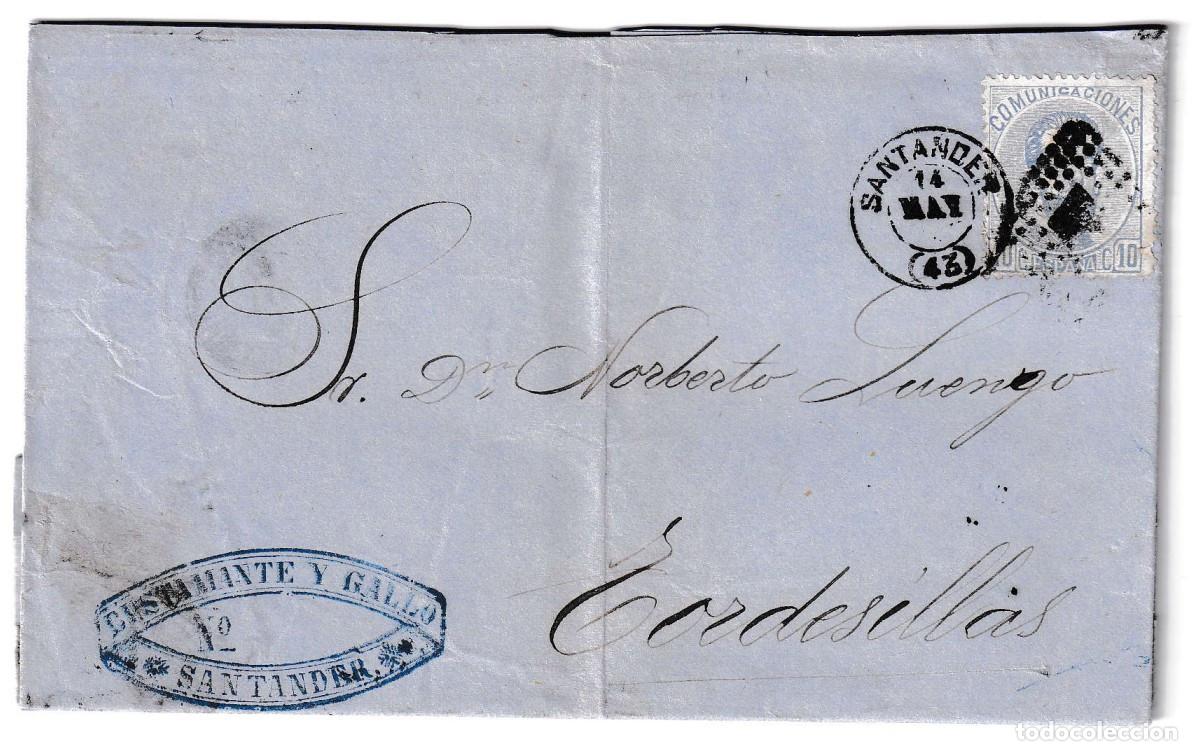 COMUNICACIONES
10 C. ESPAÑA C. 10
SANTANDER
14
MAY
(43)
Sr. Dn Norberto Luengo
Tordesillas
BUSTAMANTE Y GALLO
Nº
SANTANDER.
todocoleccion